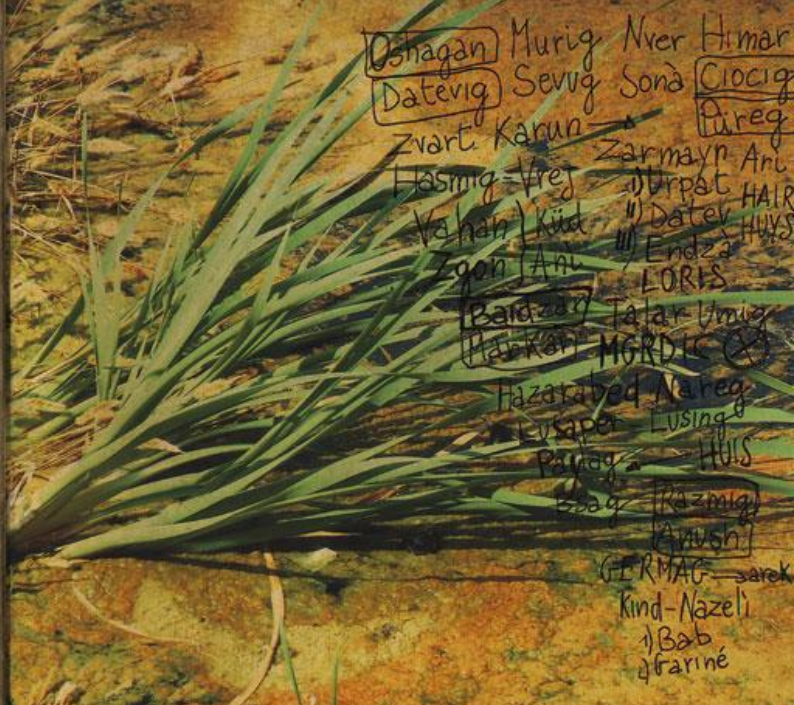 Oshagan Murig Nver Himar
Datevig Sevug Sonà Ciocig
Püreg
Zvart Karun
Zarmayn Ari
Hasmig=Vrej 1) Urpat HAIR
Vahan | Küd 11) Datev HUYS
Zgon | Anù 111) Endzà
LORIS
Baidzar Talar Umig
Markar MGRDIC X
Hazarabed Nareg
Lusaper Lusing
HUIS
Razmig
Anush
GERMAG — sarek
Kind-Nazelì
1) Bab
2) Gariné